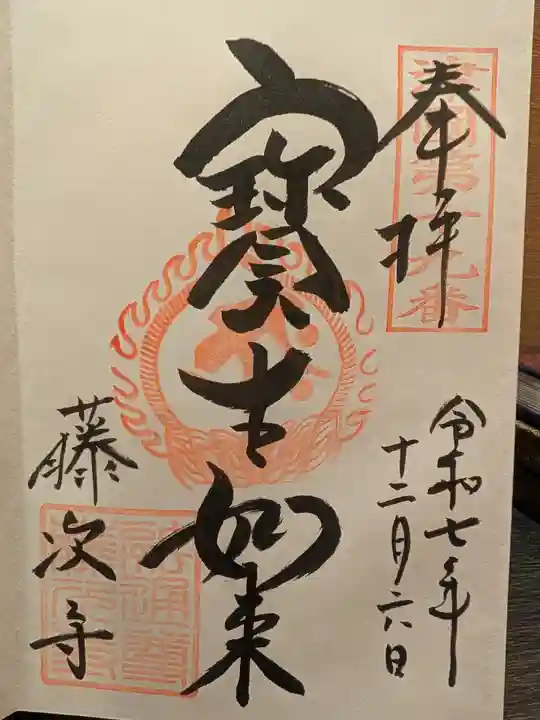 奉拝
令和七年
十二月六日
寳生如来
藤次寺